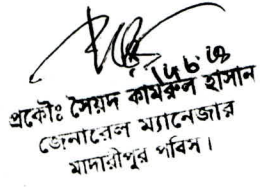 প্রকৌঃ সৈয়দ কামরুল হাসান
জেনারেল ম্যানেজার
মাদারীপুর পবিস।